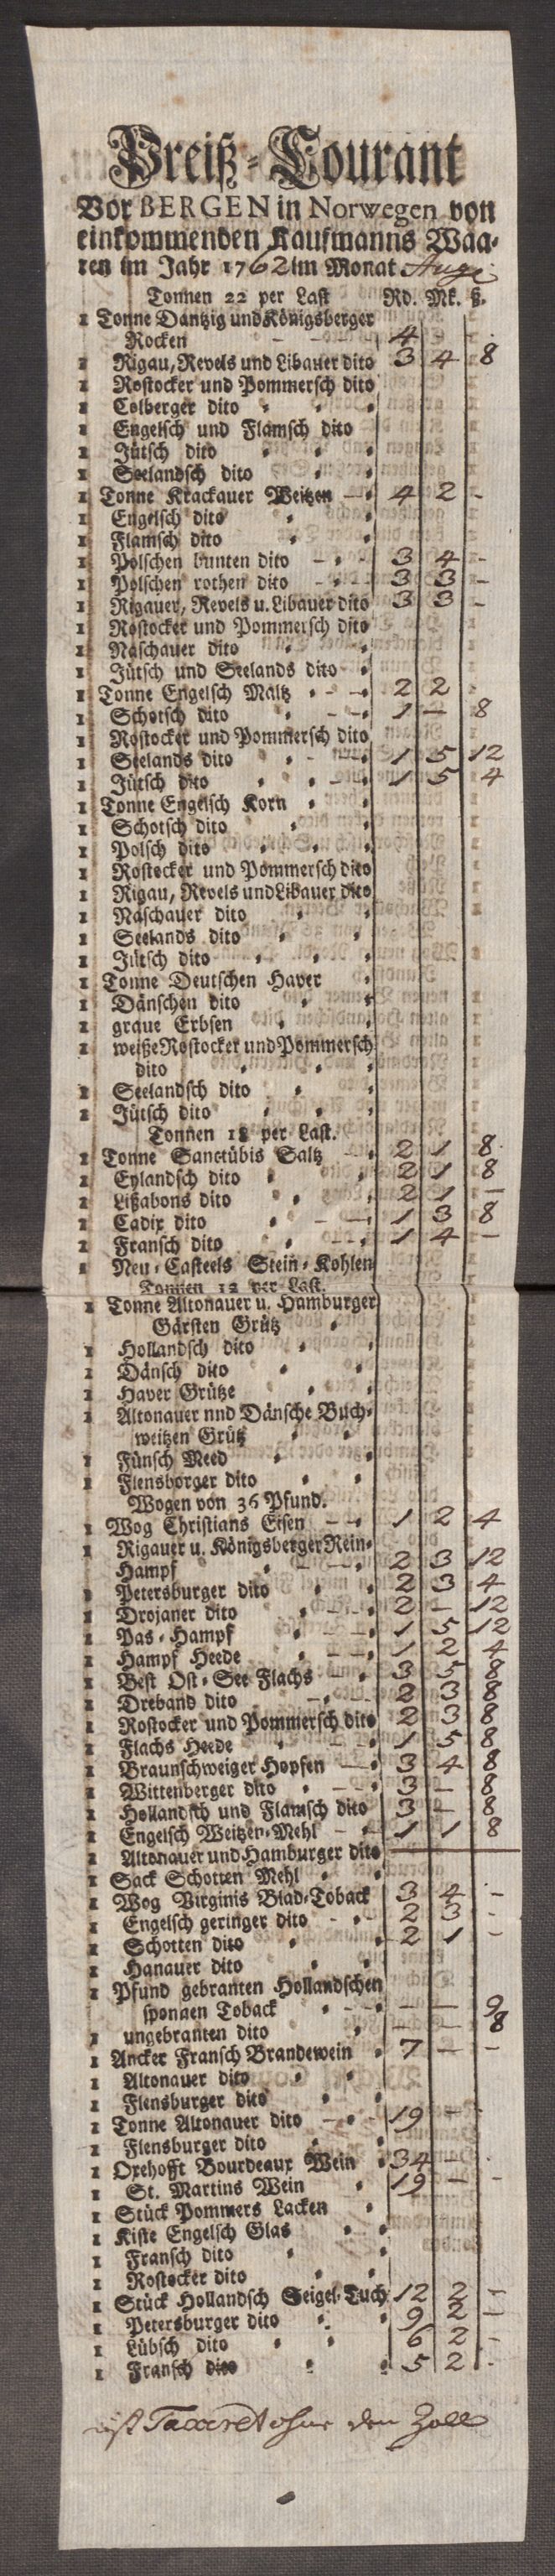 Preiß-Courant
Vor BERGEN in Norwegen von
einkommenden Kaufmanns Waa-
ren im Jahr 1762 im Monat Augi
Tonnen 22 per Last Rd. Mk. ß.
1 Tonne Dantzig und Königsberger
Rocken - - - 4 - -
1 Rigau, Revels und Libauer dito 3 4 8
1 Rostocker und Pommersch dito
1 Colberger dito
1 Engelsch und Flamsch dito
1 Jütsch dito
1 Seelandsch dito
1 Tonne Krackauer Weitzen - 4 2 -
1 Engelsch dito
1 Flamsch dito
1 Polschen bunten dito - - 3 4 -
1 Polschen rothen dito - - 3 3 -
1 Rigauer, Revels u. Libauer dito 3 3 -
1 Rostocker und Pommersch dito
1 Naschauer dito
1 Jütsch und Seelands dito
1 Tonne Engelsch Maltz - - 2 2
1 Schotsch dito - - 1 - 8
1 Rostocker und Pommersch dito
1 Seelands dito - - 1 5 12
1 Jütsch dito - 1 5 4
1 Tonne Engelsch Korn
1 Schotsch dito
1 Polsch dito
1 Rostocker und Pommersch dito
1 Rigau, Revels und Libauer dito
1 Naschauer dito
1 Seelands dito
1 Jütsch dito
1 Tonne Deutschen Haver
1 Dänschen dito
1 graue Erbsen
1 weiße Rostocker und Pommersch
dito
1 Seelandsch dito
1 Jütsch dito
Tonnen 18 per Last.
1 Tonne Sanctübis Saltz - 2 1 8
1 Eylandsch dito 2 1 8
1 Lißabons dito 2 1 -
1 Cadix dito - - 1 3 8
1 Fransch dito - - 1 4 -
1 Neu-Casteels Stein-Kohlen
Tonnen 12 per Last.
1 Tonne Altonauer u. Hamburger
Gärsten Grütz
1 Hollandsch dito
1 Dänsch dito
1 Haver Grütze
1 Altonauer nnd Dänsche Buch-
weitzen Grütz
1 Fünsch Meed
1 Flensborger dito
Wogen von 36 Pfund.
1 Wog Christians Eisen - - 1 2 4
1 Rigauer u. Königsberger Rein-
Hampf - - 2 3 12
1 Petersburger dito 2 3 4
1 Drojaner dito - - 2 - 12
1 Pas-Hampf - - 1 5 12
1 Hampf Heede - - 1 2 4
1 Best Ost-See Flachs - - 3 5 8
1 Dreband dito - - 2 3 8
1 Rostocker und Pommersch dito 2 3 8
1 Flachs Heede - - 1 5 8
1 Braunschweiger Hopfen - - 3 4 8
1 Wittenberger dito - - 3 - 8
1 Hollandsch und Flamsch dito 3 - 8
1 Engelsch Weitzen-Mehl - - 1 1 8
1 Altonauer und Hamburger dito
1 Sack Schotten Mehl
1 Wog Virginis Blad-Toback 3 4 -
1 Engelsch geringer dito - - 2 3 -
1 Schotten dito 2 1 -
1 Hanauer dito
1 Pfund gebranten Hollandschen
sponnen Toback - - - - 9
1 ungebranten dito - - 8
1 Ancker Fransch Brandewein 7 - -
1 Altonauer dito
1 Flensburger dito
1 Tonne Altonauer dito - - 19 -
1 Flensburger dito
1 Oxehofft Bourdeaux Wein 34 -
1 St. Martins Wein 19 - -
1 Stück Pommers Lacken
1 Kiste Engelsch Glas
1 Fransch dito
1 Rostocker dito
1 Stück Hollandsch Seigel-Tuch 12 2 -
1 Petersburger dito 9 2 -
1 Lübsch dito 6 2 -
1 Fransch dito 5 2 -
ist Taxeret ohne den Zoll